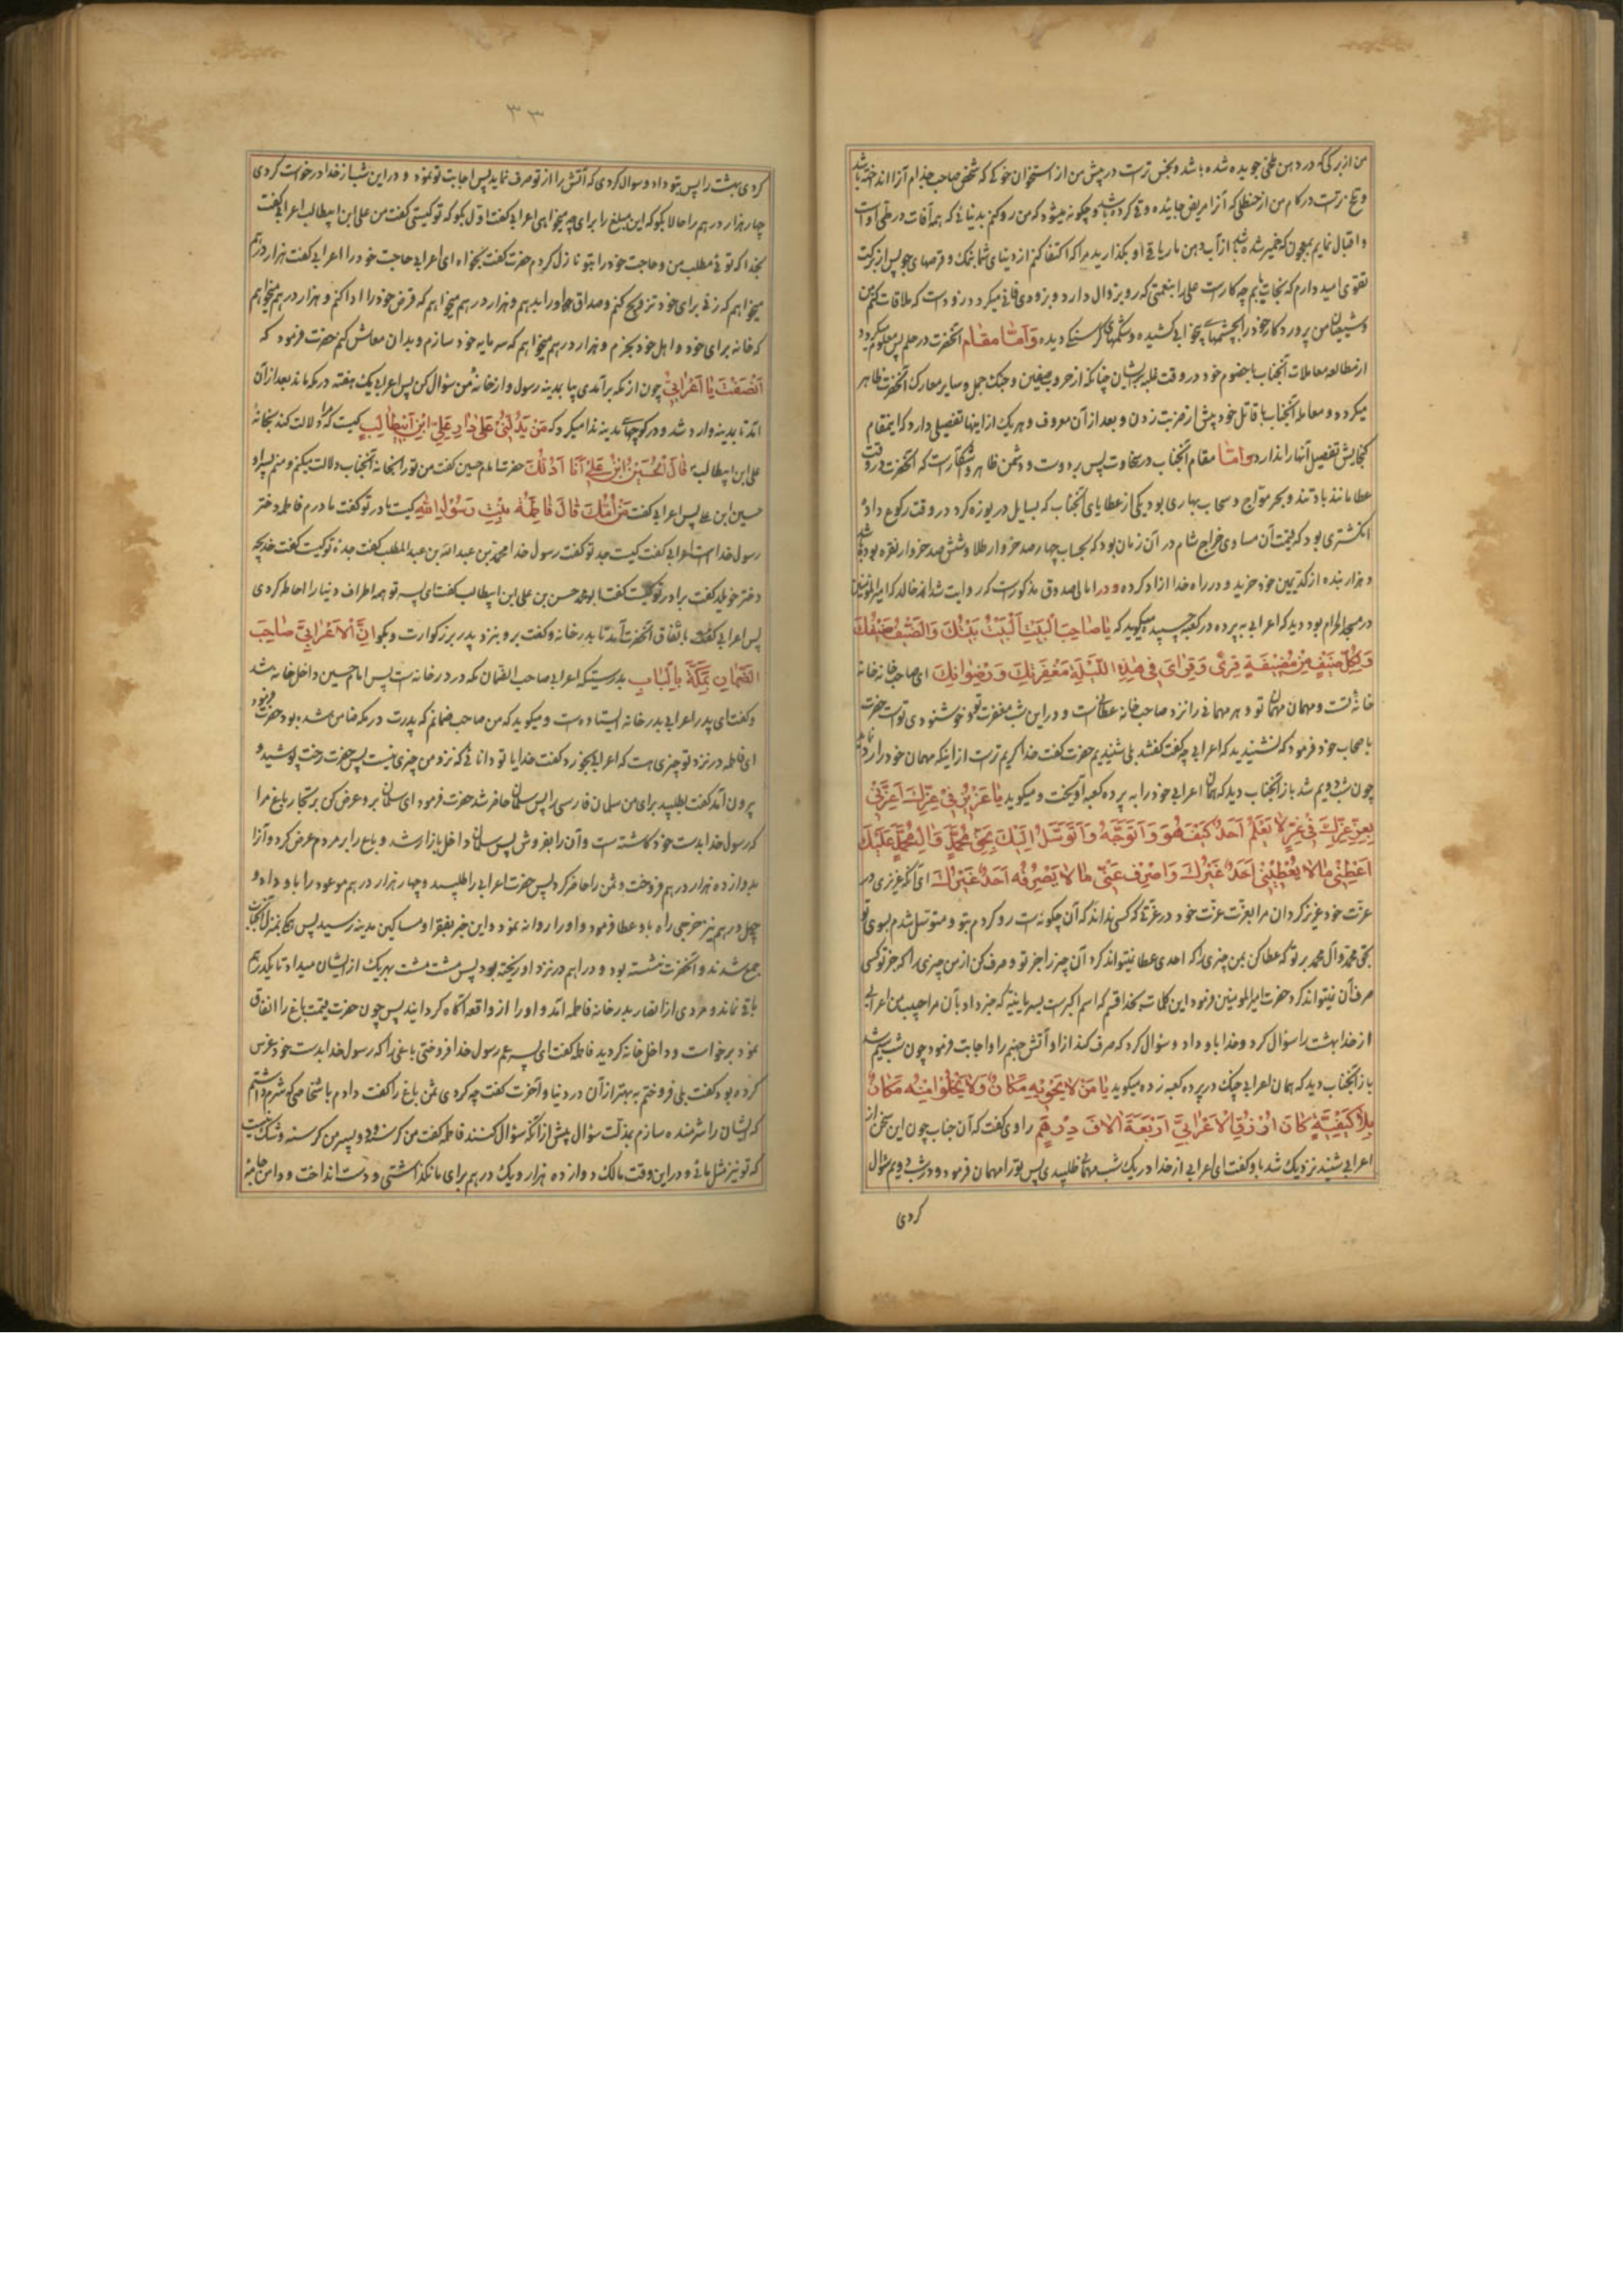 من از برگی که در دهن ملخی جویده شده باشد و نجس‌تر است در پیش من از استخوان خوکی که شخص صاحب جذام آنرا انداخته باشد
و تلخ‌تر است در کام من از حنظلی که آنرا مریض خائیده و قی کرده باشد و چگونه میشود که من رو کنم بدنیائی که همه آفات در طی او است
و اقبال نمایم بمعجون که خمیر شده باشد از آب دهن مار یا قی او بگذارید مرا که اکتفا کنم از دنیای شما بنمک و قرصهای جو پس از برکت
تقوی امید دارم که نجات یابم چه کار است علی را بنعمتی که رو بزوال دارد و بزودی فانی میگردد زود است که ملاقات کنم من
و شیعیان من پروردگار خود را بچشمهای بیخوابی کشیده و شکمهای گرسنگی دیده وَاَمّا مقام آنحضرت در حلم پس معلوم میگردد
از مطالعه معاملات آنجناب با خصوم خود در وقت غلبه بر ایشان چنانکه از حرب صفین و جنگ جمل و سایر معارک آنحضرت ظاهر
میگردد و معامله آنجناب با قاتل خود پیش از ضربت زدن و بعد از آن معروف و هر یک از اینها تفصیلی دارد که اینمقام
گنجایش تفصیل آنها را ندارد وامّا مقام آنجناب در سخاوت پس بر دوست و دشمن ظاهر و آشکار است که آنحضرت در وقت
عطا مانند باد تند و بحر موّاج و سحاب بهاری بود یکی از عطایای آنجناب که بسایل در یوزه کرد در وقت رکوع دادهٔ
انگشتری بود که قیمت آن مساوی خراج شام در آن زمان بود که بحساب چهار صد خروار طلا و شش صد خروار نقره بوده باشد
و هزار بنده از کد یمین خود خرید و در راه خدا آزاد کرده و در امالی صدوق مذکور است که روایت شد از خالد که امیرالمؤمنین
در مسجد الحرام بود دید که اعرابی به پرده در کعبه چسپیده میگوید که یا صاحِبَ الْبَیْتِ اَلْبَیْتُ بَیْتُكَ وَالضَّیْفُ ضَیْفُكَ
وَلِكُلِّ ضَیْفٍ مِنْ مُضَیِّفِهِ قِریً وَقِرایَ فی هٰذِهِ اللَّیْلَةِ مَغْفِرَتُكَ وَرِضْوانُكَ ای صاحب خانه خانه
خانهٔ تست و مهمان مهمان تو و هر مهمانی را نزد صاحب خانه عطائی است و در این شب مغفرت تو و خوشنودی تو است حضرت
باصحاب خود فرمود که شنیدید که اعرابی چه گفت گفتند بلی شنیدیم حضرت گفت خدا کریم‌تر است از اینکه مهمان خود را رد نماید
چون شب دویم شد باز آنجناب دید که همان اعرابی خود را به پرده کعبه آویخت و میگوید یا عَزیزُ فی عِزِّكَ اَعِزَّنی
بِعِزِّ عِزِّكَ فی عِزٍّ لا یَعْلَمُ اَحَدٌ كَیْفَ هُوَ وَاَتَوَجَّهُ وَاَتَوَسَّلُ اِلَیْكَ بِحَقِّ مُحَمَّدٍ وَآلِ مُحَمَّدٍ عَلَیْكَ
اَعْطِنی مالا یُعْطینی اَحَدٌ غَیْرُكَ وَاصْرِفْ عَنّی مالا یَصْرِفُهُ اَحَدٌ غَیْرُكَ ای آنکه عزیزی در
عزّت خود عزیز گردان مرا بعزّت عزّت خود در عزّتی که کسی نداند که آن چگونه است رو کردم بتو و متوسّل شدم بسوی تو
بحق محمد و آل محمد بر تو که عطا کن بمن چیزی را که احدی عطا نمیتواند کرد آن چیز را جز تو و صرف کن از من چیزی را که جز تو کسی
صرف آن نمیتواند کرد حضرت امیرالمومنین فرمود این کلمات بخدا قسم که اسم اکبر است بسریانیّه که خبر داد بآن مرا حبیب من اعرابی
از خدا بهشت را سؤال کرد و خدا باو داد و سؤال کرد که صرف کند از او آتش جهنم را و اجابت فرمود چون شب سیّم شد
باز آنجناب دید که همان اعرابی چنگ در پرده کعبه زده میگوید یا مَنْ لا یَحْویهِ مَكانٌ وَلا یَخْلُوا مِنْهُ مَكانٌ
بِلا كَیْفِیَّةٍ كانَ اُرْزُقِ الْاَعْرابِیَّ اَرْبَعَةَ آلافِ دِرْهَمٍ راوی گفت که آن جناب چون این سخن از
اعرابی شنید نزدیک شد باو گفت ای اعرابی از خدا در یک شب مهمانی طلبیدی پس تو را مهمان فرمود و در شب دویم سؤال
کردی
۳۳
کردی بهشت را پس بتو داد و سوال کردی که آتش را از تو صرف نماید پس اجابت تو نمود و در این شب از خدا درخواست کردی
چهار هزار درهم را حالا بگو که این مبلغ را برای چه میخواهی اعرابی گفت اول بگو که تو کیستی گفت من علی ابن ابیطالب اعرابی گفت
بخدا که توئی مطلب من و حاجت خود را بتو نازل کردم حضرت گفت بخواه ای اعرابی حاجت خود را اعرابی گفت هزار درهم
میخواهم که زنی برای خود تزویج کنم و صداق او را بدهم و هزار درهم میخواهم که قرض خود را ادا کنم و هزار درهم میخواهم
که خانه برای خود و اهل خود بخرم و هزار درهم میخواهم که سرمایه خود سازم و بدان معاش کنم حضرت فرمود که
اَنْصَفْتَ یا اَعْرابِیُّ چون از مکه برآمدی بیا بمدینه رسول و از خانهٔ من سؤال کن پس اعرابی یک هفته در مکه ماند بعد از آن
آمد تا بمدینه وارد شد و در کوچهای مدینه ندا میکرد که مَنْ یَدُلُّنی عَلی دارِ عَلِیِّ ابْنِ اَبیطالِبٍ کیست که مرا دلالت کند بخانهٔ
علی ابن ابیطالب قالَ الْحُسَیْنُ ابْنُ عَلِیٍّ اَنَا اَدُلُّكَ حضرت امام حسین گفت من تو را بخانه آنجناب دلالت میکنم و منم پسر او
حسین ابن علی پس اعرابی گفت مَنْ اُمُّكَ قالَ فاطِمَةُ بِنْتُ رَسُولِ اللهِ کیست مادر تو گفت مادرم فاطمه دختر
رسول خدا است اعرابی گفت کیست جد تو گفت رسول خدا محمد بن عبدالله بن عبدالمطلب گفت جدهٔ تو کیست گفت خدیجه
دختر خویلد گفت برادر تو کیست گفت ابو محمد حسن بن علی ابن ابیطالب گفت ای پسر تو همه اطراف دنیا را احاطه کردی
پس اعرابی باتفاق آنحضرت آمد تا بدر خانه و گفت برو بنزد پدر بزرگوارت و بگو اِنَّ الْاَعْرابِیَّ صاحِبَ
الضَّمانِ بِمَكَّةَ بِالْبابِ بدرستیکه اعرابی صاحب الضمان مکه در در خانه است پس امام حسین داخل خانه شد
و گفت ای پدر اعرابی بدر خانه ایستاده است و میگوید که من صاحب ضمانم که پدرت در مکه ضامن شده بود حضرت فرمود
ای فاطمه در نزد تو چیزی هست که اعرابی بخورد گفت خدایا تو دانائی که نزد من چیزی نیست پس حضرت رخت پوشید و
بیرون آمد گفت بطلبید برای من سلمان فارسی را پس سلمان حاضر شد حضرت فرمود ای سلمان برو عرض کن بر تجار باغ مرا
که رسول خدا بدست خود کاشته است و آن را بفروش پس سلمان داخل بازار شد و باغ را بر مردم عرض کرد و آنرا
بدوازده هزار درهم فروخت و ثمن را حاضر کرد پس حضرت اعرابی را طلبید و چهار هزار درهم موعود را باو داد و
چهل درهم نیز خرجی راه باو عطا فرمود و او را روانه نمود و این خبر بفقرا و مساکین مدینه رسید پس همگی بمنزل آنجناب
جمع شدند و آنحضرت نشسته بود و دراهم در نزد او ریخته بود پس مشت مشت بهریک از ایشان میداد تا یکدرهم
باقی نماند و مردی از انصار بدر خانه فاطمه آمد و او را از واقعه آگاه گردانید پس چون حضرت قیمت باغ را انفاق
نمود برخواست و داخل خانه گردید فاطمه گفت ای پسر عم رسول خدا فروختی باغی را که رسول خدا بدست خود غرس
کرده بود گفت بلی فروختم به بهتر از آن در دنیا و آخرت گفت چه کردی ثمن باغ را گفت دادم باشخاصی که شرم داشتم
که ایشان را شرمنده سازم بمذلّت سؤال پیش از آنکه سؤال کنند فاطمه گفت من گرسنه و دو پسر من گرسنه و شک نیست
که تو نیز مثل مائی و در این وقت مالک دوازده هزار و یک درهم برای ما نگذاشتی و دست انداخت و دامن جامهٔ